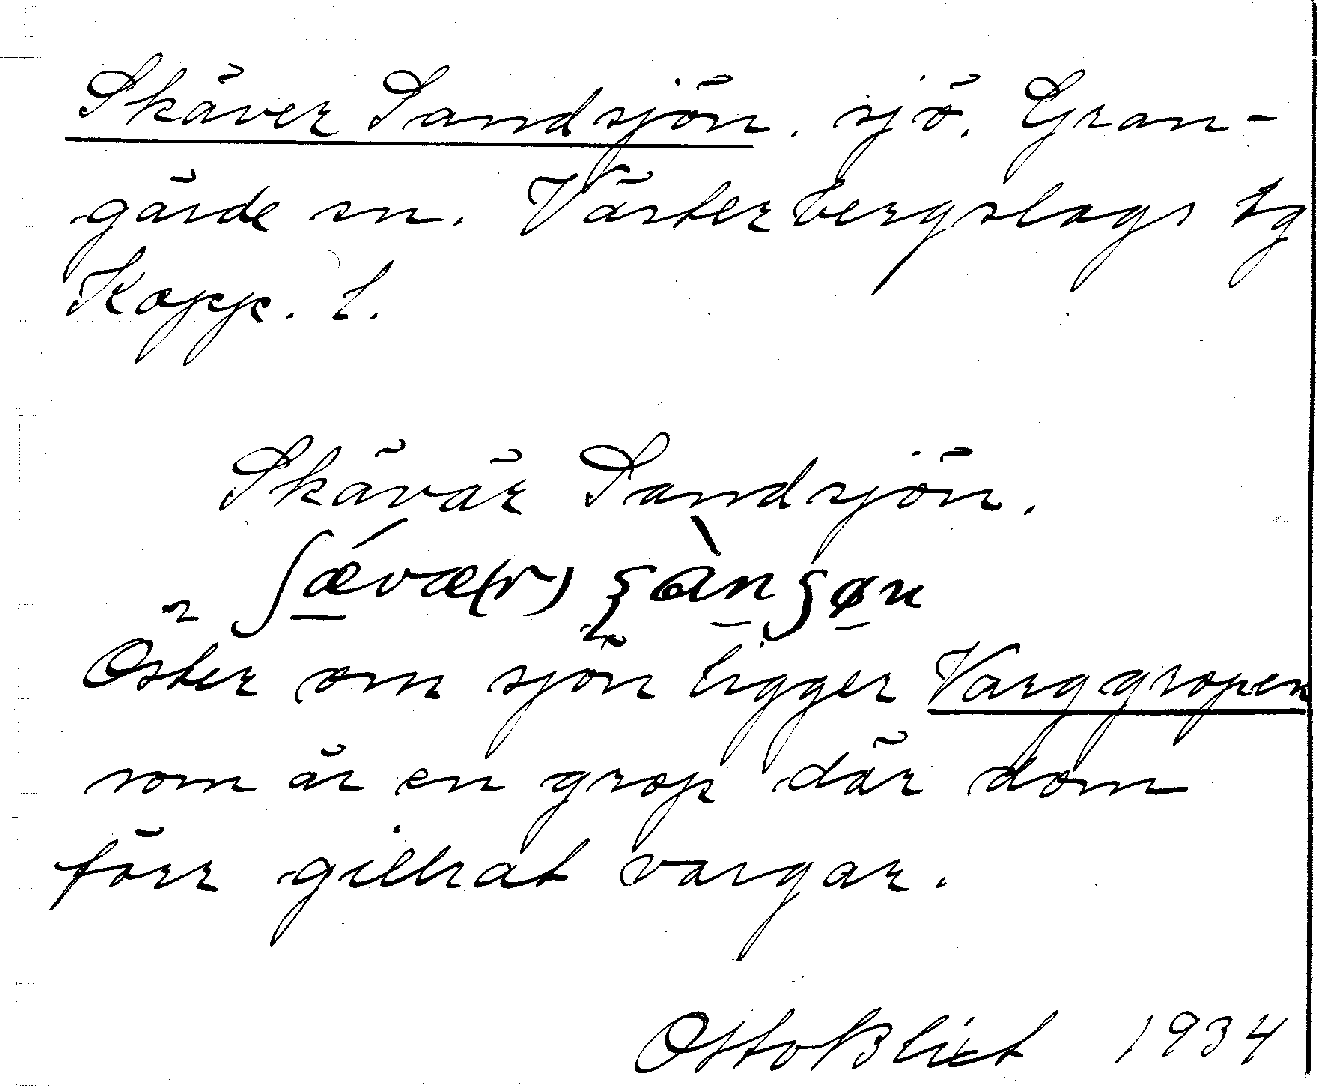 Skäver Sandsjön. sjö. Gran-
gärde sn. Västerbergslags tg
Kopp. l.
Skävär Sandsjön.
ʃǽvæ(r) ʂànʂøn
Öster om sjön ligger Varggropen
som är en grop där dom
förr gillrat vargar.
Otto Blixt 1934